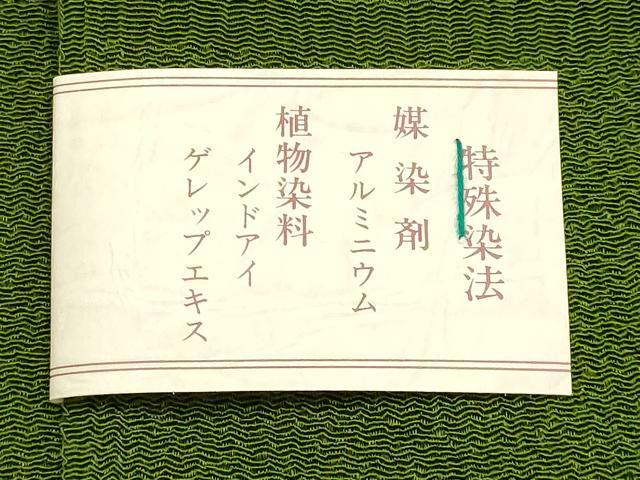 特殊染法
媒染剤
アルミニウム
植物染料
インドアイ
ゲレップエキス